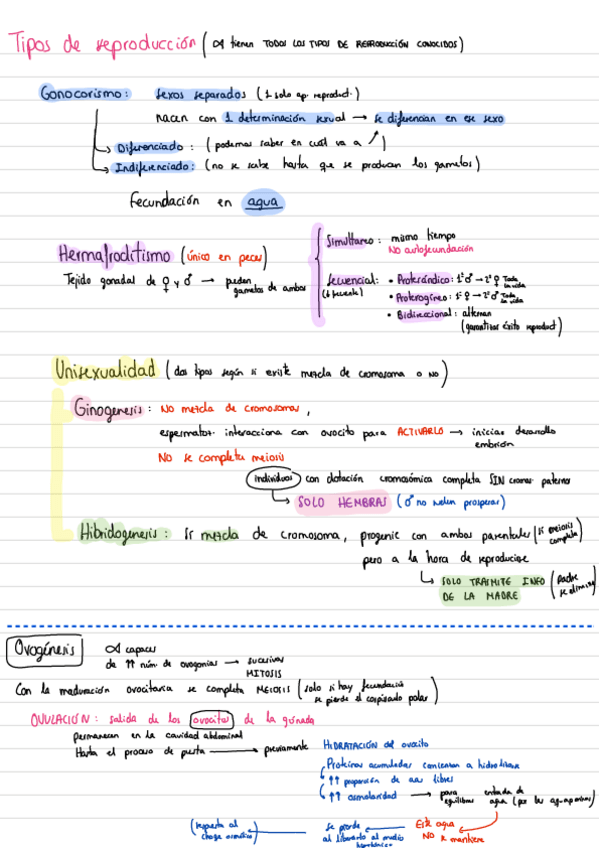 Tipos de reproducción ( tienen TODOS LOS TIPOS DE REPRODUCCIÓN CONOCIDOS)
Gonocorismo: sexos separados (1 solo ap. reproduct.)
nacen con 1 determinación sexual → se diferencian en ese sexo
→ Diferenciado: (podemos saber en cuál va a ↗)
→ Indiferenciado: (no se sabe hasta que se producen los gametos)
Fecundación en agua
Hermafroditismo (único en peces)
Tejido gonadal de ♀ y ♂ → pueden gametos de ambos
Simultáneo: mismo tiempo
NO autofecundación
Secuencial: • Proterándrico: 1º ♂ → 2º ♀ Toda la vida
(6 • Proterogíneo: 1º ♀ → 2º ♂ Toda la vida
• Bidireccional: alternan
(garantizar éxito reproduct)
Unisexualidad (dos tipos según si existe mezcla de cromosoma o no)
Ginogenesis: NO mezcla de cromosomas,
espermatoz. interacciona con ovocito para ACTIVARLO → iniciar desarrollo
embrión
NO se completa meiosis
individuos con dotación cromosómica completa SIN cromos. paternos
→ SOLO HEMBRAS (♂ no suelen prosperar)
Hibridogenesis: Sí mezcla de cromosoma, progenie con ambos parentales (si meiosis completa)
pero a la hora de reproducirse
→ SOLO TRASMITE INFO DE LA MADRE (Padre se elimina)
Ovogénesis capaces
de ↑↑ núm. de ovogonias → sucesivas
MITOSIS
Con la maduración ovocitaria se completa MEIOSIS (solo si hay fecundación
se pierde el corpúsculo polar)
OVULACIÓN: salida de los ovocitos de la gónada
permanecen en la cavidad abdominal
Hasta el proceso de puesta → previamente HIDRATACIÓN del ovocito
Proteínas acumuladas comienzan a hidrolizarse
↑↑ proporción de aas libres
↑↑ osmolaridad → para equilibrar entrada de agua (por las aquaporinas)
Este agua NO se mantiene
← se pierde al liberarlo al medio
← (respuesta al choque osmótico)